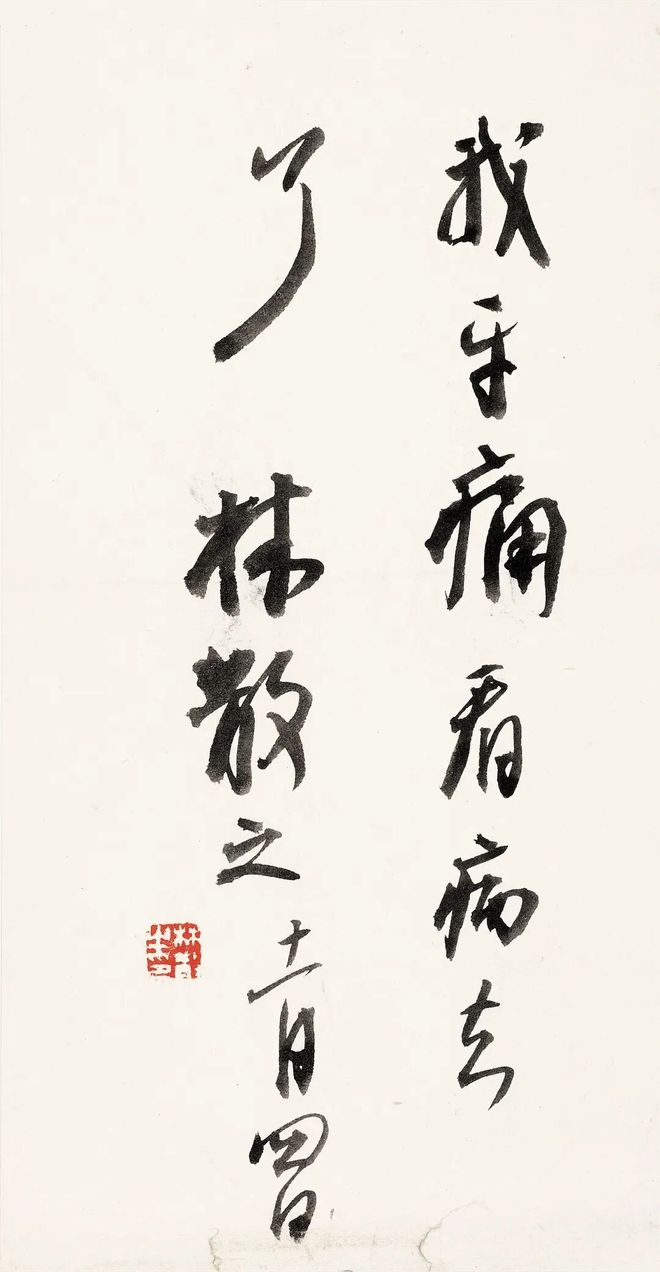 我牙痛看病去
了 林散之 十一月四日